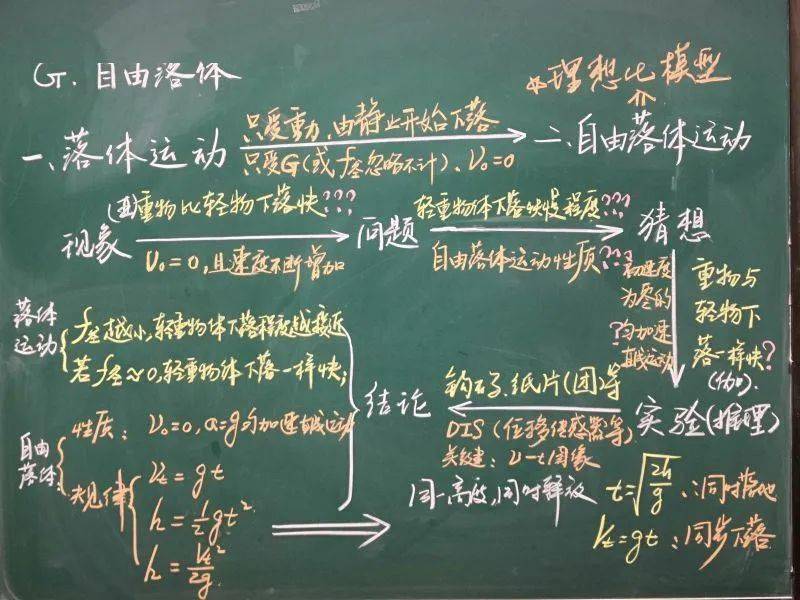 G. 自由落体
☆理想化模型
一、落体运动
只受重力,由静止开始下落
只受G(或f空忽略不计)、V₀=0
二、自由落体运动
现象
(亚)重物比轻物下落快???
V₀=0,且速度不断增加
问题
轻重物体下落快慢程度???
自由落体运动性质??
猜想
初速度
为零的
?匀加速
直线运动
重物与
轻物下
落一样快?
(伽).
落体
运动
f空越小,轻重物体下落程度越接近
若f空≈0,轻重物体下落一样快;
结论
钩码、纸片(团)等
DIS(位移传感器等)
关键:v-t图象
实验(推理)
自由
落体
性质:V₀=0,a=g匀加速直线运动
规律
Vt=gt
h=½gt²
h=Vt²/2g
同一高度,同时释放
t=√(2h/g) ∴同时落地
Vt=gt:同步下落